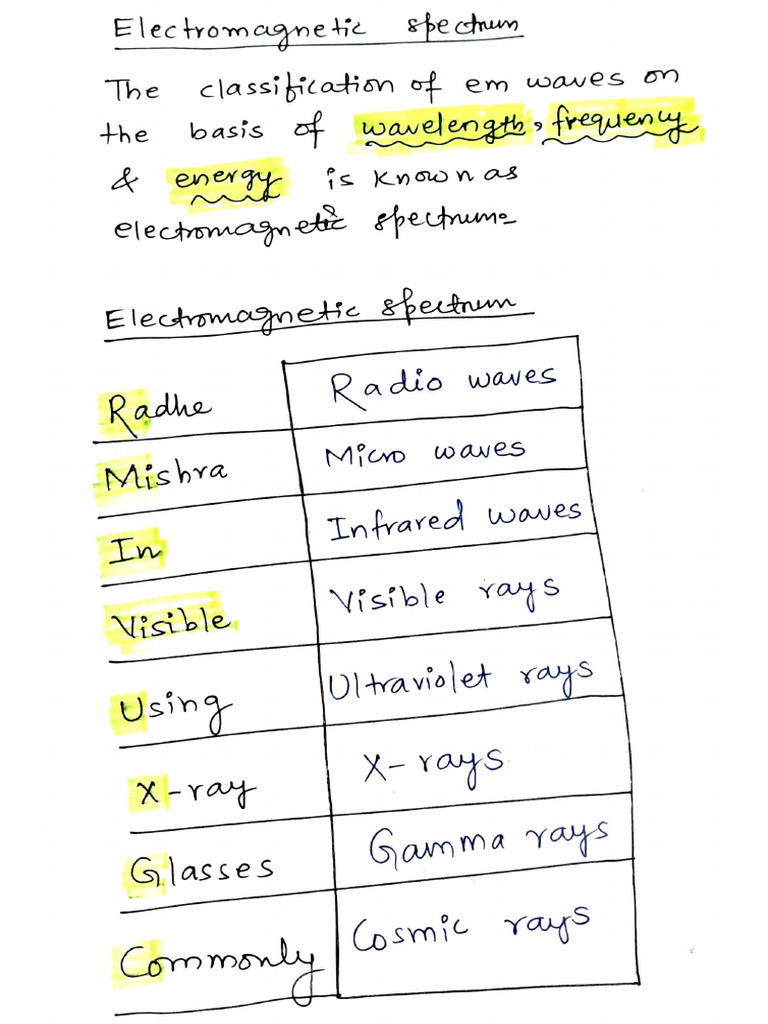 Electromagnetic spectrum
The classification of em waves on
the basis of wavelength, frequency
& energy is known as
electromagnetic spectrum.
Electromagnetic spectrum
Radhe Radio waves
Mishra Micro waves
In Infrared waves
Visible Visible rays
Using Ultraviolet rays
X-ray X-rays
Glasses Gamma rays
Commonly Cosmic rays